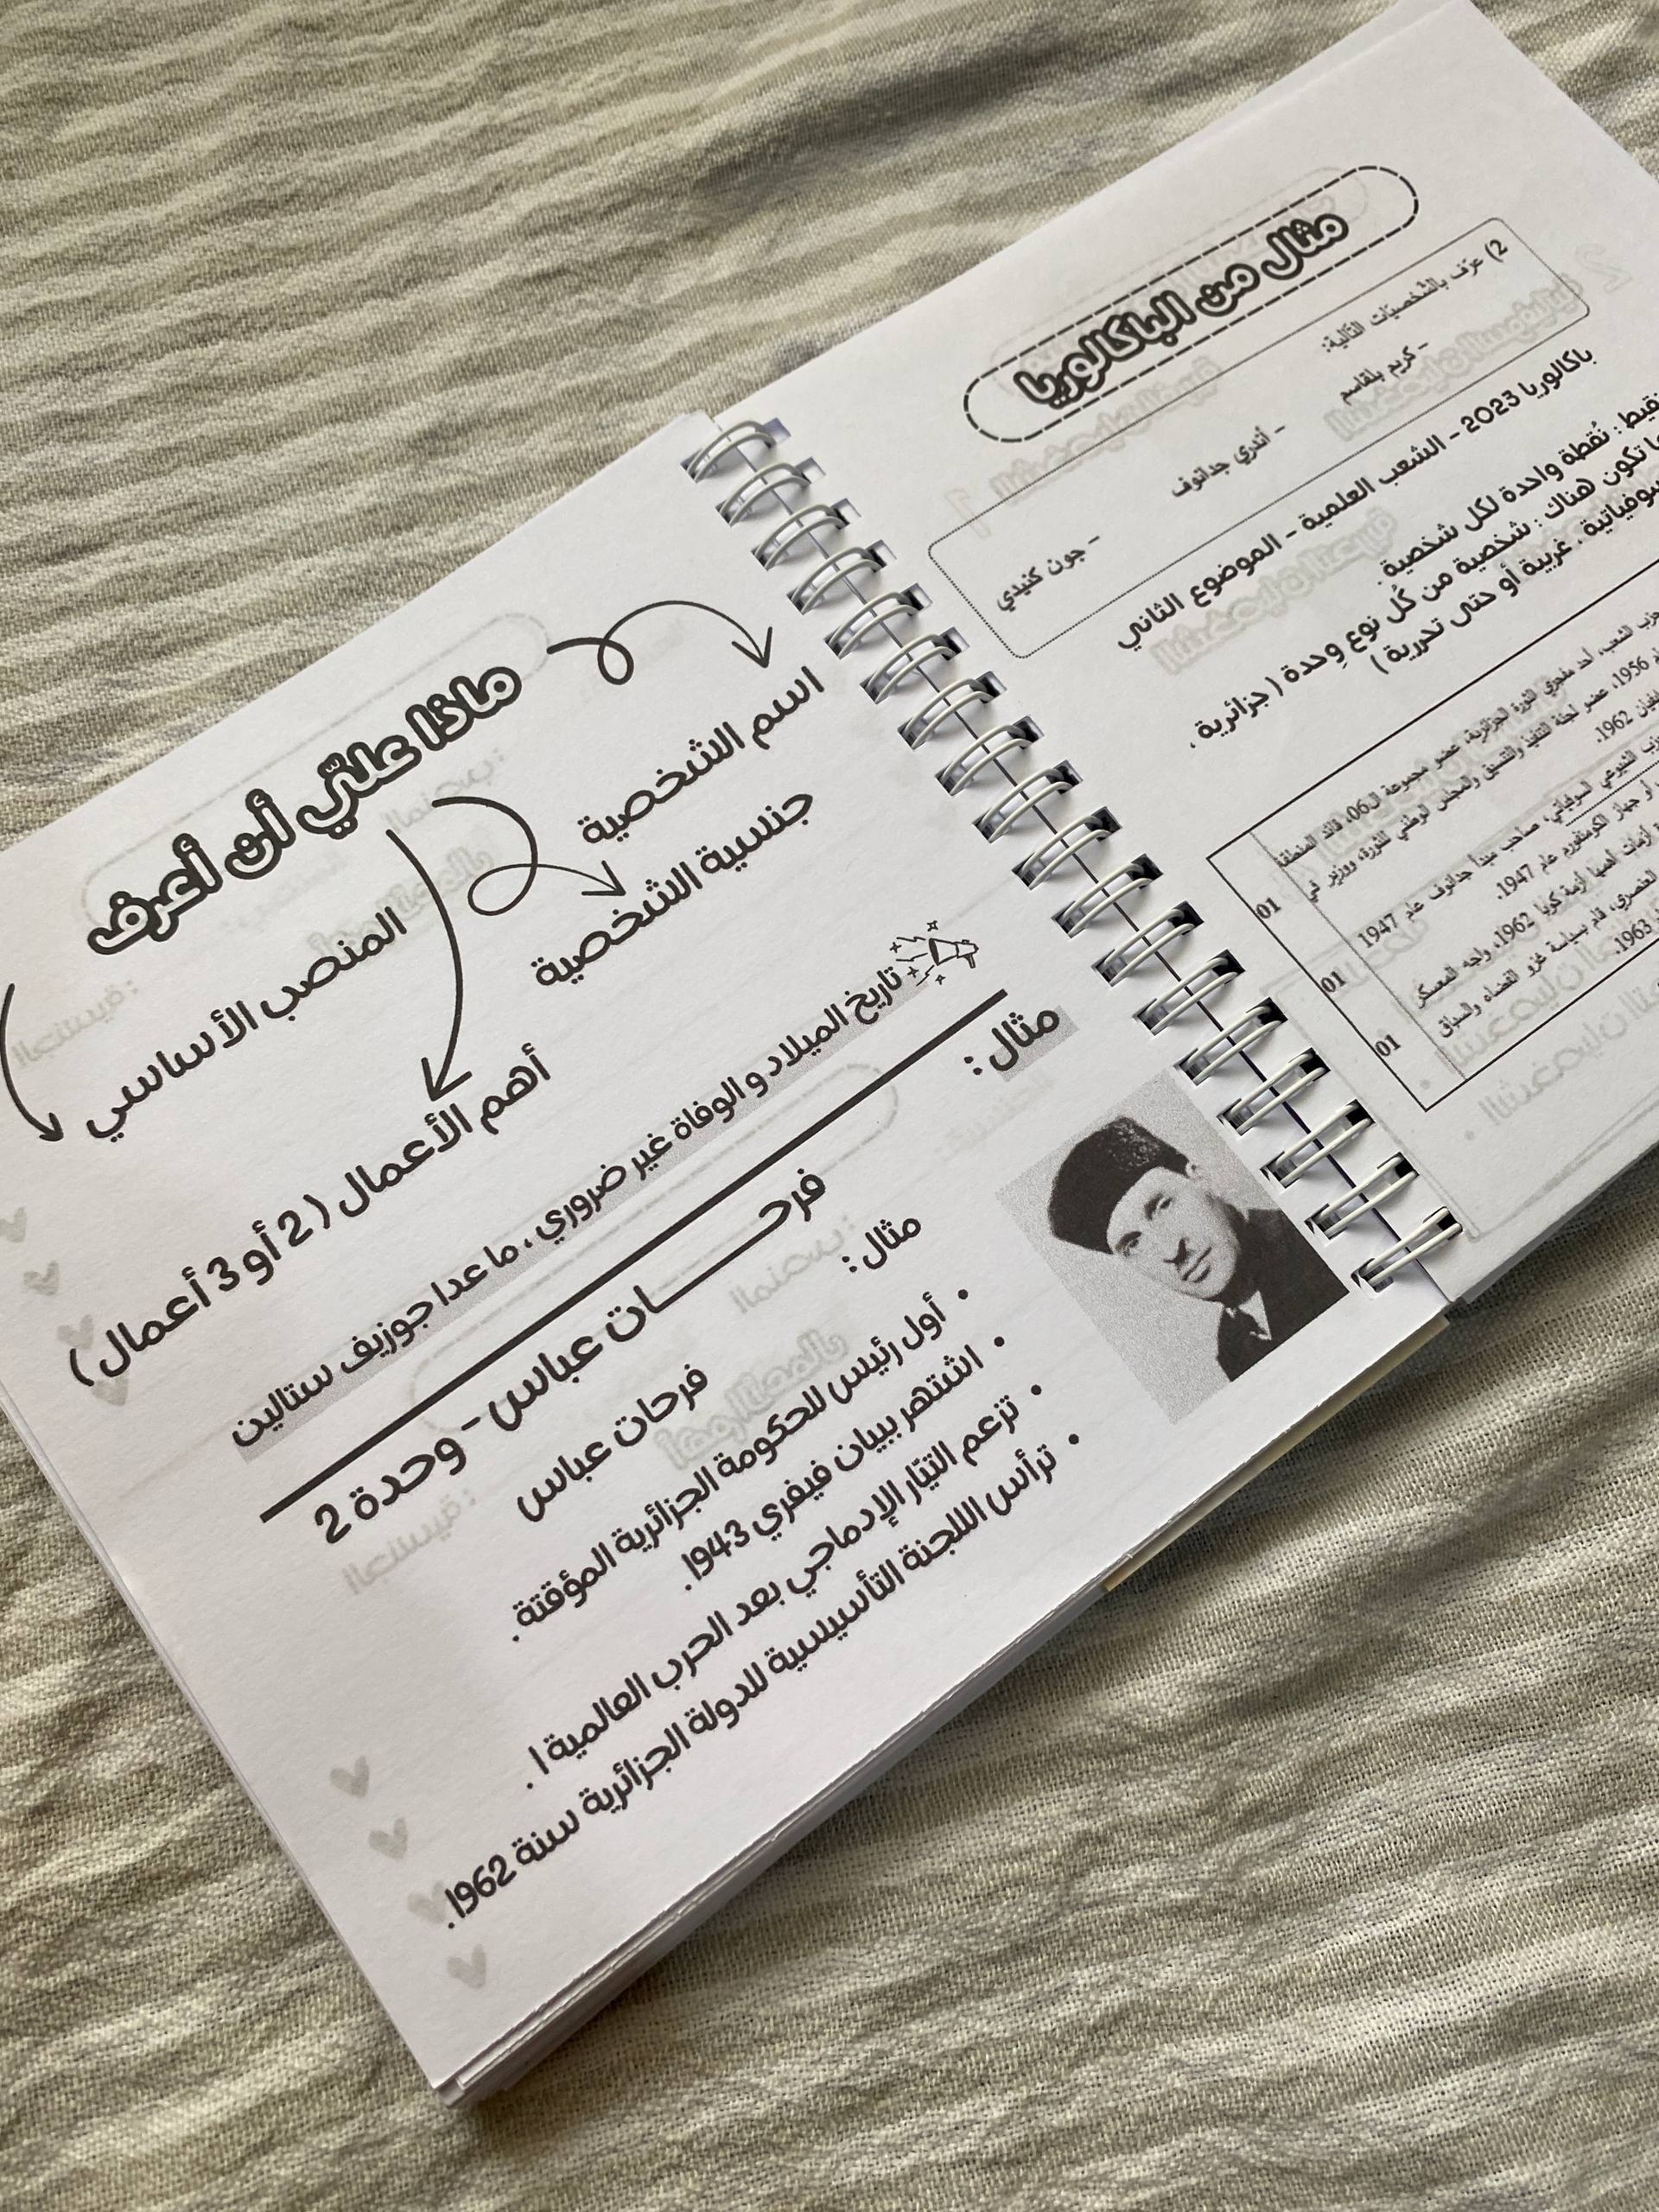 مثال من الباكالوريا
2) عرّف بالشخصيّات التّالية:
- كريم بلقاسم - أندري جدانوف - جون كنيدي
باكالوريا 2023 - الشعب العلمية - الموضوع الثاني
نُقطة واحدة لكل شخصية.
تكون هناك : شخصية من كُل نوع وِحدة ( جزائرية ،
غربية أو حتى تحررية )
الشعب، أحد مفجري الثورة الجزائرية، عضو مجموعة الـ06، قائد المنطقة
1956، عضو لجنة التنفيذ والتنسيق والمجلس الوطني للثورة، ووزير في
1962.
01
الشيوعي السوفياتي، صاحب مبدأ جدانوف عام 1947
أو جهاز الكومنفورم عام 1947.
01
أزمة كوبا 1962، واجه المعسكر
العنصري، قام بسياسة غزو الفضاء والسباق
1963.
01
ماذا عليّ أن أعرف
اسم الشخصية
جنسية الشخصية
المنصب الأساسي
أهم الأعمال ( 2 أو 3 أعمال )
تاريخ الميلاد و الوفاة غير ضروري ، ما عدا جوزيف ستالين
مثال :
فرحــــات عباس - وحدة 2
مثال :
فرحات عباس
• أول رئيس للحكومة الجزائرية المؤقتة .
• اشتهر ببيان فيفري 1943.
• تزعم التيّار الإدماجي بعد الحرب العالمية 1 .
• ترأس اللجنة التأسيسية للدولة الجزائرية سنة 1962.